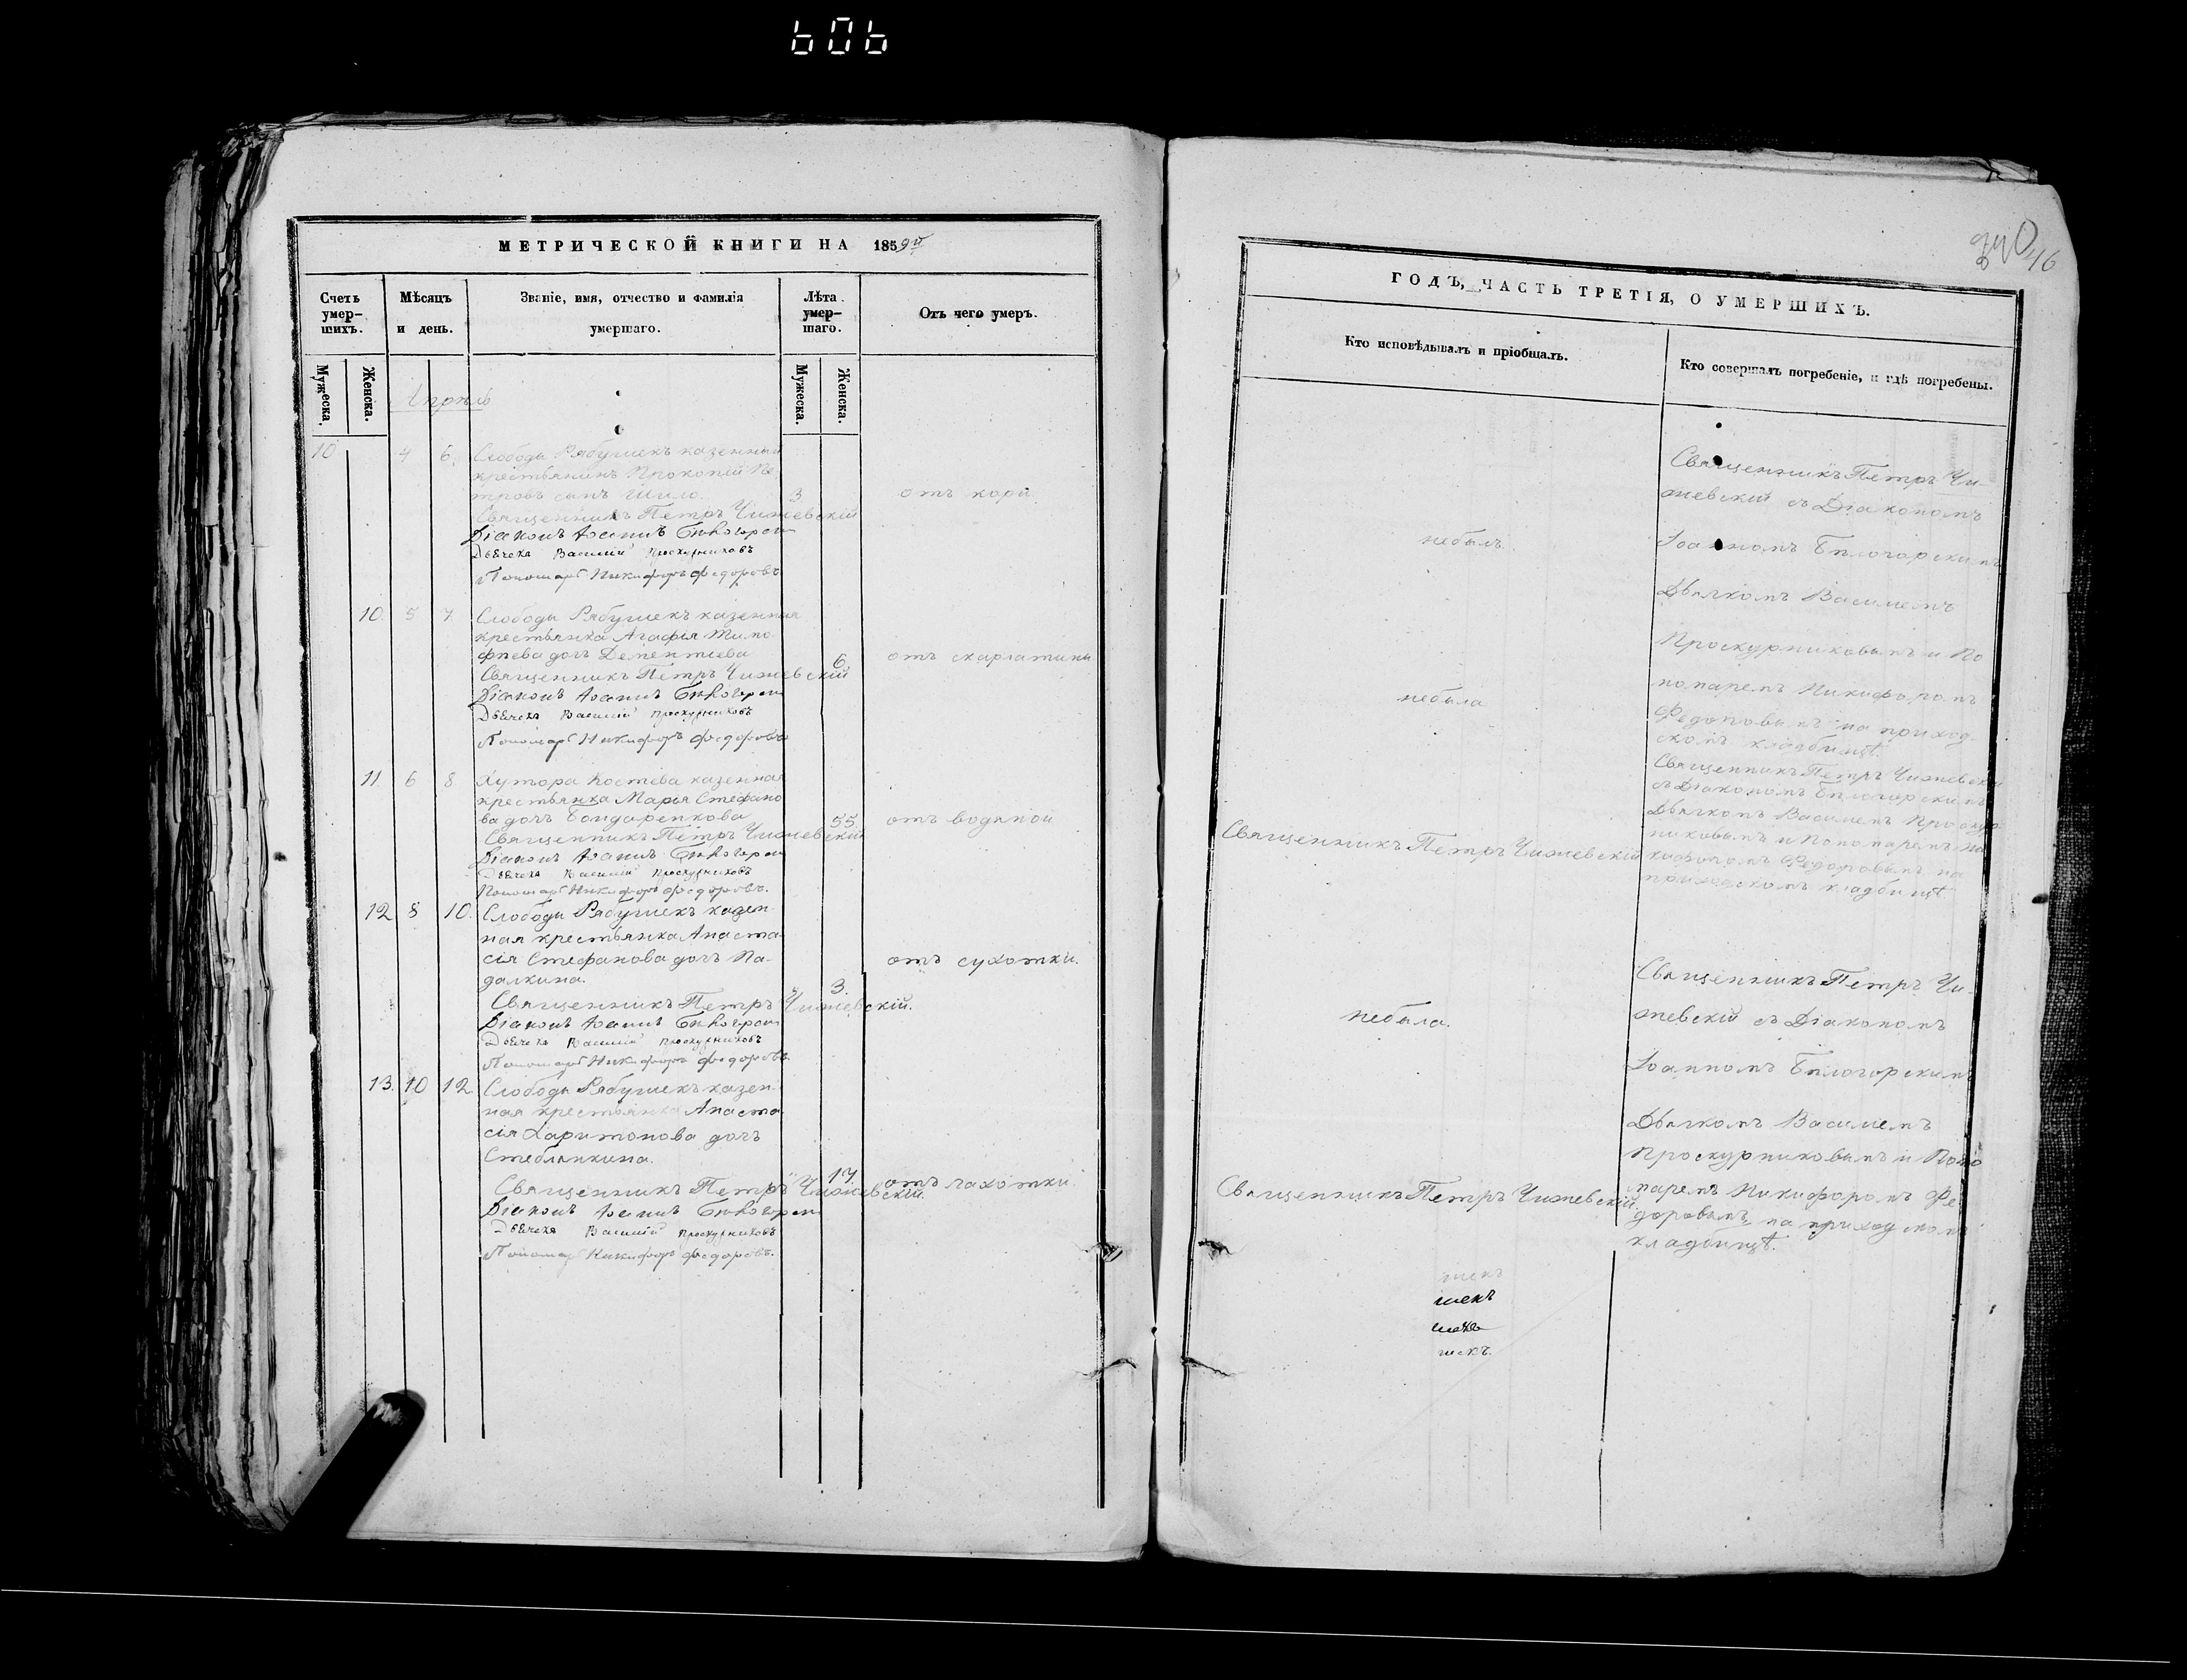 МЕТРИЧЕСКОЙ КНИГИ НА 1859й
Счетъ умер-шихъ.
Мѣсяцъ и день.
Званіе, имя, отчество и фамилія умершаго.
Лѣта умер-шаго.
Отъ чего умеръ.
Мужеска.
Женска.
Мужеска.
Женска.
Апрѣль
10 4 6. Слободы Рябушекъ казенный
крестьянинъ Прокопій Пе
тровъ сынъ Шило. 3 отъ кори
Священникъ Петръ Чижевскій
Діаконъ Іоаннъ Бѣлогорскій
Дьячекъ Василій Проскурниковъ
Пономарь Никифоръ Федоровъ
10. 5 7. Слободы Рябушекъ казенная
крестьянка Агафія Тимо
фѣева дочь Дементіева 6. отъ скарлатины
Священникъ Петръ Чижевскій
Діаконъ Іоаннъ Бѣлогорскій
Дьячекъ Василій Проскурниковъ
Пономарь Никифоръ Федоровъ
11. 6 8 Хутора Костева казенная
крестьянка Марья Стефано
ва дочь Бондаренкова 55. отъ водяной
Священникъ Петръ Чижевскій
Діаконъ Іоаннъ Бѣлогорскій
Дьячекъ Василій Проскурниковъ
Пономарь Никифоръ Федоровъ.
12. 8 10. Слободы Рябушекъ казен
ная крестьянка Анаста
сія Стефанова дочь Па-
далкина. 3. отъ сухотки.
Священникъ Петръ Чижевскій.
Діаконъ Іоаннъ Бѣлогорскій
Дьячекъ Василій Проскурниковъ
Пономарь Никифоръ Федоровъ
13. 10 12. Слободы Рябушекъ казен-
ная крестьянка Анаста
сія Харитонова дочь
Стеблянкина. 17. отъ чахотки.
Священникъ Петръ Чижевскій.
Діаконъ Іоаннъ Бѣлогорскій
Дьячекъ Василій Проскурниковъ
Пономарь Никифоръ Федоровъ.
340
16
ГОДЪ, ЧАСТЬ ТРЕТІЯ, О УМЕРШИХЪ.
Кто исповѣдывалъ и пріобщалъ.
Кто совершалъ погребеніе, и гдѣ погребены.
Священникъ Петръ Чи-
жевскій съ Діакономъ
небылъ. Іоанномъ Бѣлогорскимъ
Дьячкомъ Василіемъ
Проскурниковымъ и По
номаремъ Никифоромъ
небыла
Федоровымъ на приход-
скомъ кладбищѣ.
Священникъ Петръ Чижевскій
съ Діакономъ Бѣлогорскимъ
Дьячкомъ Василіемъ Проскур
никовымъ и Пономаремъ Ни
Священникъ Петръ Чижевскій кифоромъ Федоровымъ на
приходскомъ кладбищѣ.
Священникъ Петръ Чи-
небыла. жевскій съ Діакономъ
Іоанномъ Бѣлогорскимъ
Дьячкомъ Василіемъ
Проскурниковымъ и Поно
Священникъ Петръ Чижевскій. маремъ Никифоромъ Фе
доровымъ на приходскомъ
кладбищѣ.
шекъ
шекъ
шекъ
шекъ.